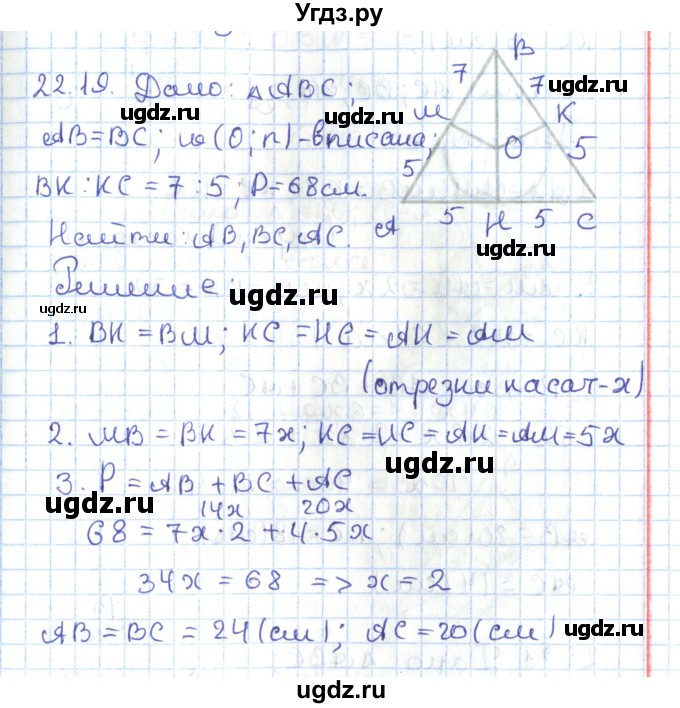 Угдз.ру
22.19. Дано: △ABC;
AB=BC; ω(O;r)-вписана;
BK:KC=7:5; P=68см.
Найти: AB, BC, AC.
Решение:
1. BK=BM; KC=HC=AH=AM
(отрезки касат-х)
2. MB=BK=7x; KC=HC=AH=AM=5x
3. P=AB+BC+AC
14x 20x
68=7x·2+4·5x
34x=68 => x=2
AB=BC=24(см); AC=20(см)
B
7 7
M K
O
5 5
A 5 H 5 C
ugdz.ru
ugdz.ru
ugdz.ru
ugdz.ru
ugdz.ru
ugdz.ru
ugdz.ru
ugdz.ru
ugdz.ru
ugdz.ru
ugdz.ru
ugdz.ru